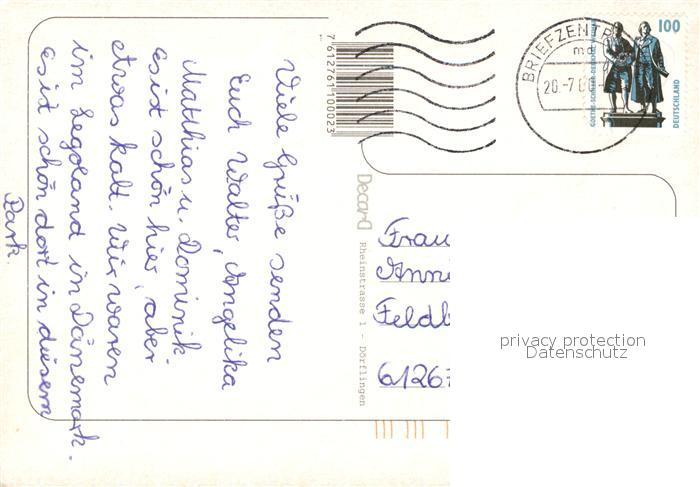 Viele Grüße senden
Euch Walter, Angelika
Matthias u. Dominik.
es ist schön hier, aber
etwas kalt. Wir waren
im Legoland in Dänemark.
es ist schön dort in diesem
Park.
7612761100023
Decard
Rheinstrasse 1 - Dörflingen
BRIEFZENTR
md
20.-7.0
100
GOETHE-SCHILLER-DENKMAL
DEUTSCHLAND
Frau
Ann
Feldb
6126
privacy protection
Datenschutz